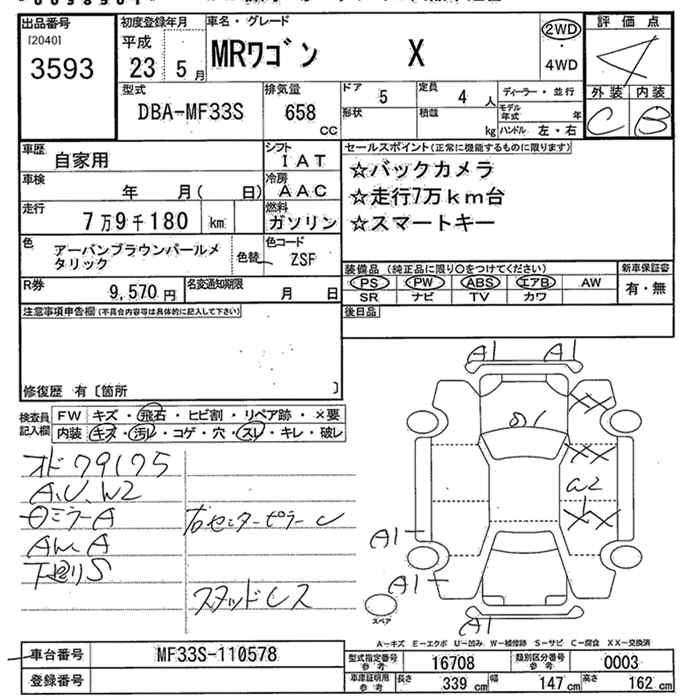 出品番号
[2040]
3593
初度登録年月
平成
23 5 月
車名・グレード
MRワゴン X
2WD
・
4WD
評価点
4
外装 内装
C B
型式
DBA-MF33S
排気量
658
cc
ドア 5
定員 4 人
ディーラー・並行
形状
積載 kg
モデル年式 年
ハンドル 左・右
車歴
自家用
シフト
IAT
セールスポイント(正常に機能するものに限ります)
☆バックカメラ
☆走行7万km台
☆スマートキー
車検
年 月( 日)
冷房
AAC
走行
7万9千180 km
燃料
ガソリン
色
アーバンブラウンパールメ
タリック
色替
色コード
ZSF
R券
9,570 円
名変通知期限
月 日
装備品(純正品に限り○をつけてください)
PS PW ABS エアB AW
SR ナビ TV カワ
新車保証書
有・無
注意事項申告欄(不具合内容等は具体的に記入して下さい)
後日品
修復歴 有〔箇所 〕
検査員
記入欄
FW キズ・飛石・ヒビ割・リペア跡・×要
内装 キズ・汚レ・コゲ・穴・スレ・キレ・破レ
オド79175
A.U.W2
A
AWA
S
センターピラー
スタッドレス
A1 A1
XX
XX
W2
XX
A1
A1
A1
スペア
A-キズ E-エクボ U-凹み W-補修跡 S-サビ C-腐食 XX-交換済
車台番号
MF33S-110578
登録番号
型式指定番号
参考
16708
類別区分番号
参考
0003
車庫証明用
参考
長さ 339 cm
幅 147 cm
高さ 162 cm